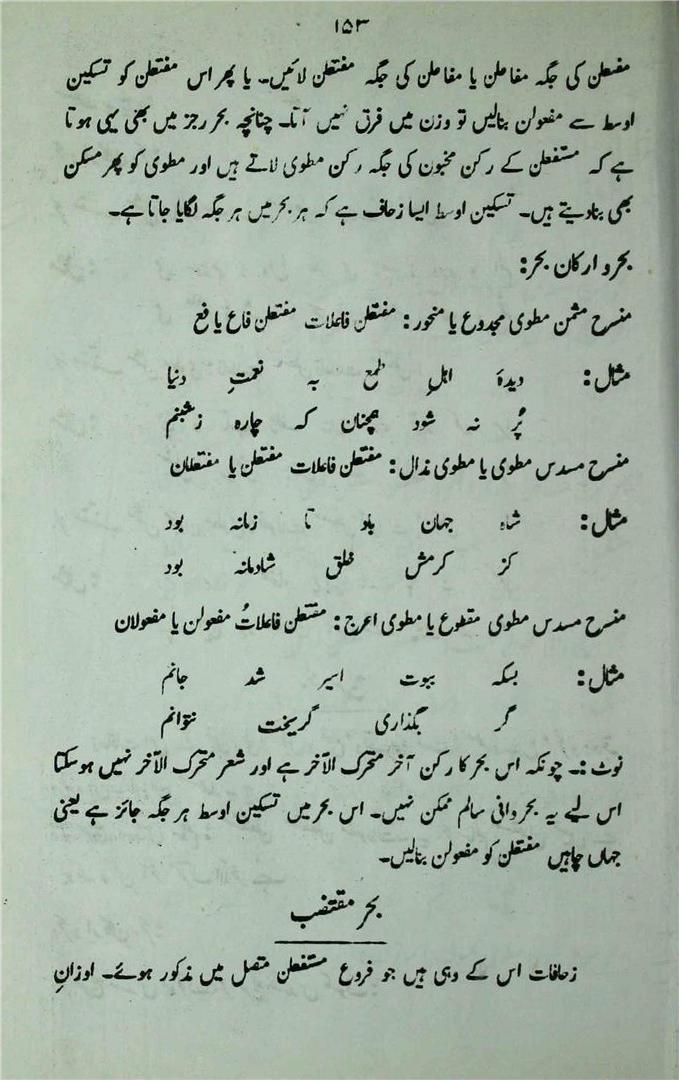 ۱۵۳
مفتعلن کی جگہ مفاعلن یا مفاعلن کی جگہ مفتعلن لائیں۔ یا پھر اس مفتعلن کو تسکین
اوسط سے مفعولن بنالیں تو وزن میں فرق نہیں آتا۔ چنانچہ بحر رجز میں بھی یہی ہوتا
ہے کہ مستفعلن کے رکن مخبون کی جگہ رکن مطوی لاتے ہیں اور مطوی کو پھر مسکن
بھی بنا دیتے ہیں۔ تسکین اوسط ایسا زحاف ہے کہ ہر بحر میں ہر جگہ لگایا جاتا ہے۔
بحر و ارکان بحر:
منسرح مثمن مطوی مجدوع یا منحور: مفتعلن فاعلات مفتعلن فاع یا فع
مثال: دیدۂ اہلِ طمع بہ نعمتِ دنیا
پُر نہ شود ہمچنان کہ چاہ ز شبنم
منسرح مسدس مطوی یا مطوی مذال: مفتعلن فاعلات مفتعلن یا مفتعلان
مثال: شاہ جہان باد تا زمانہ بود
کز کرمش خلق شادمانہ بود
منسرح مسدس مطوی مقطوع یا مطوی اعرج: مفتعلن فاعلاتُ مفعولن یا مفعولان
مثال: بسکہ ببوت اسیر شد جانم
گر بگذاری گریخت نتوانم
نوٹ:۔ چونکہ اس بحر کا رکن آخر متحرک الآخر ہے اور شعر متحرک الآخر نہیں ہوسکتا
اس لیے یہ بحر وانی سالم ممکن نہیں۔ اس بحر میں تسکین اوسط ہر جگہ جائز ہے یعنی
جہاں چاہیں مفتعلن کو مفعولن بنالیں۔
بحر مقتضب
زحافات اس کے وہی ہیں جو فروع مستفعلن متصل میں مذکور ہوئے۔ اوزانِ